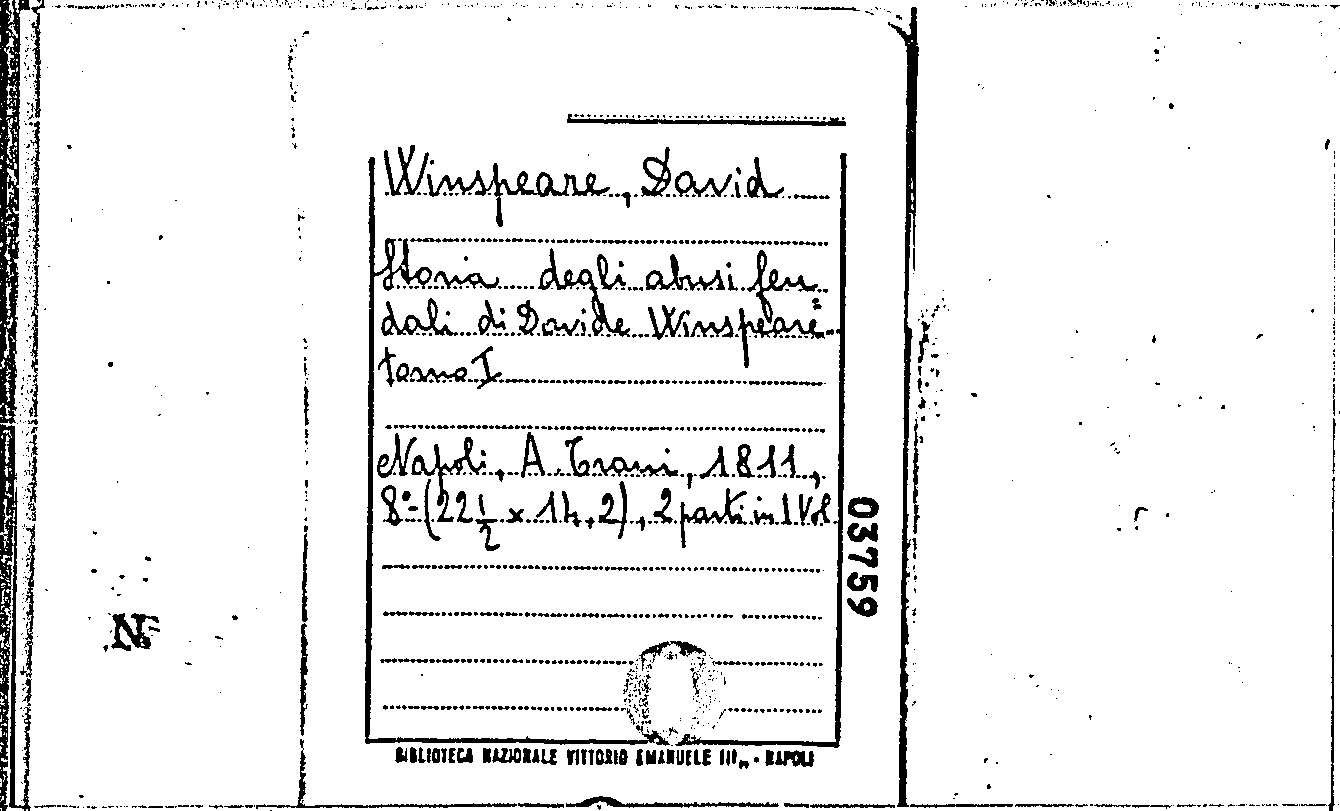 Winspeare, David
Storia degli abusi feu
dali di Davide Winspeare
tomo I
Napoli, A. Trani, 1811,
8º-(22 1/2 x 14,2), 2 parti in 1 Vol
03759
N
BIBLIOTECA NAZIONALE VITTORIO EMANUELE III - NAPOLI